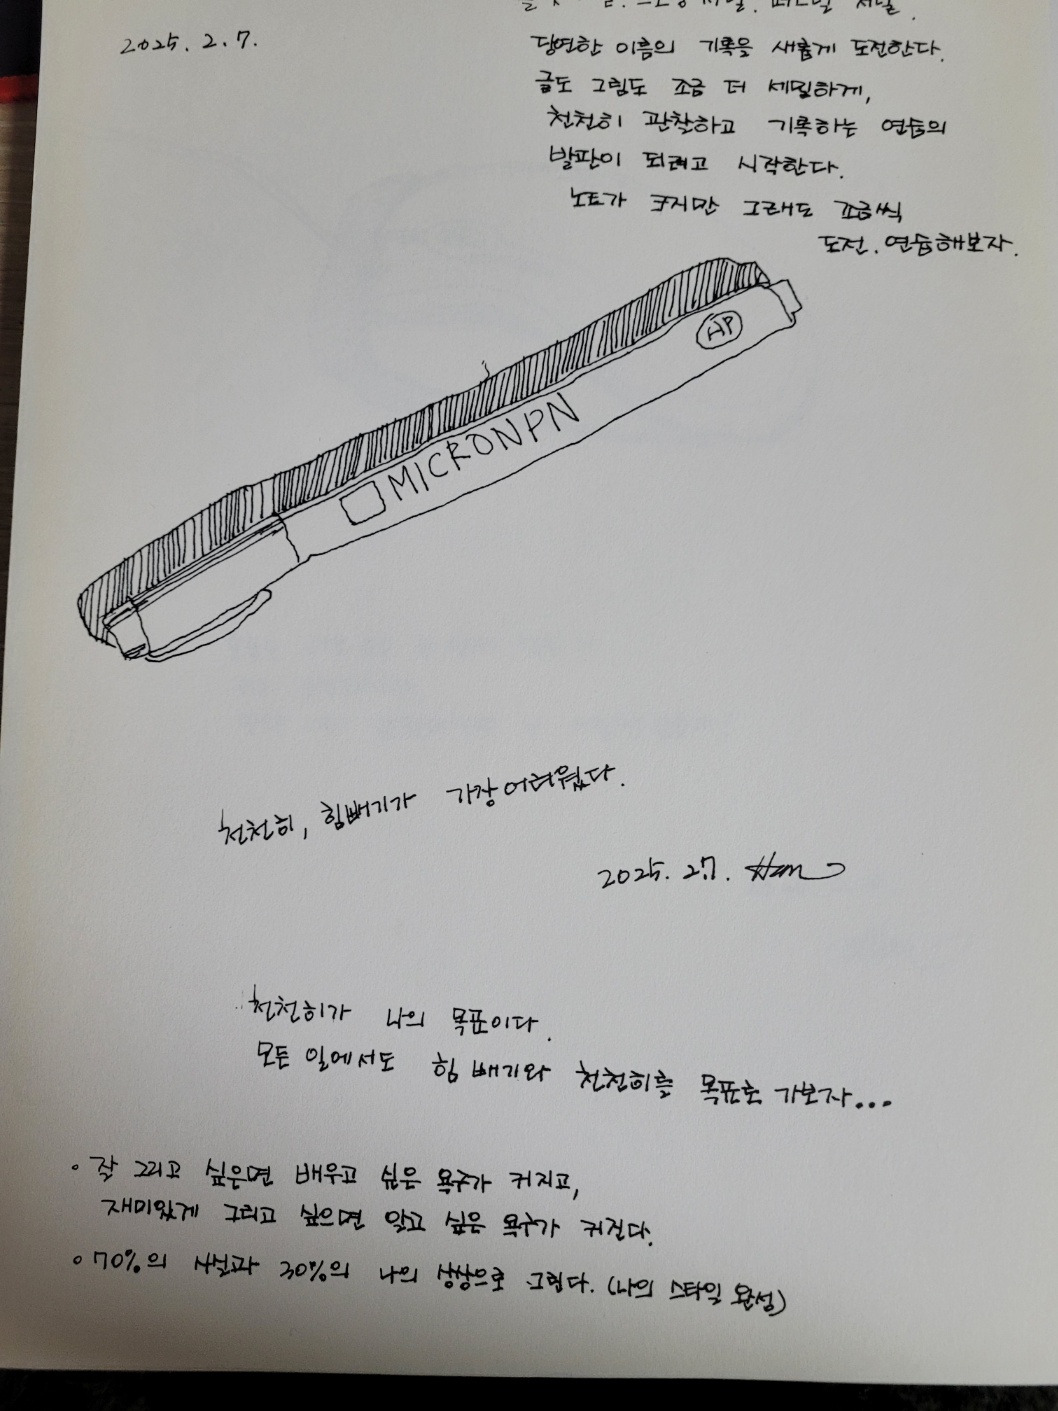 2025. 2. 7.
당연한 이름의 기록을 새롭게 도전한다.
글도 그림도 조금 더 세밀하게,
천천히 관찰하고 기록하는 연습의
발판이 되려고 시작한다.
노트가 크지만 그래도 조금씩
도전. 연습해보자.
AP
MICRONPN
천천히, 힘빼기가 가장 어려웠다.
2025. 2.7.
천천히가 나의 목표이다.
모든 일에서도 힘 빼기와 천천히를 목표로 가보자...
• 잘 그리고 싶은면 배우고 싶은 욕구가 커지고,
재미있게 그리고 싶으면 알고 싶은 욕구가 커진다.
• 70%의 사실과 30%의 나의 상상으로 그린다. (나의 스타일 완성)